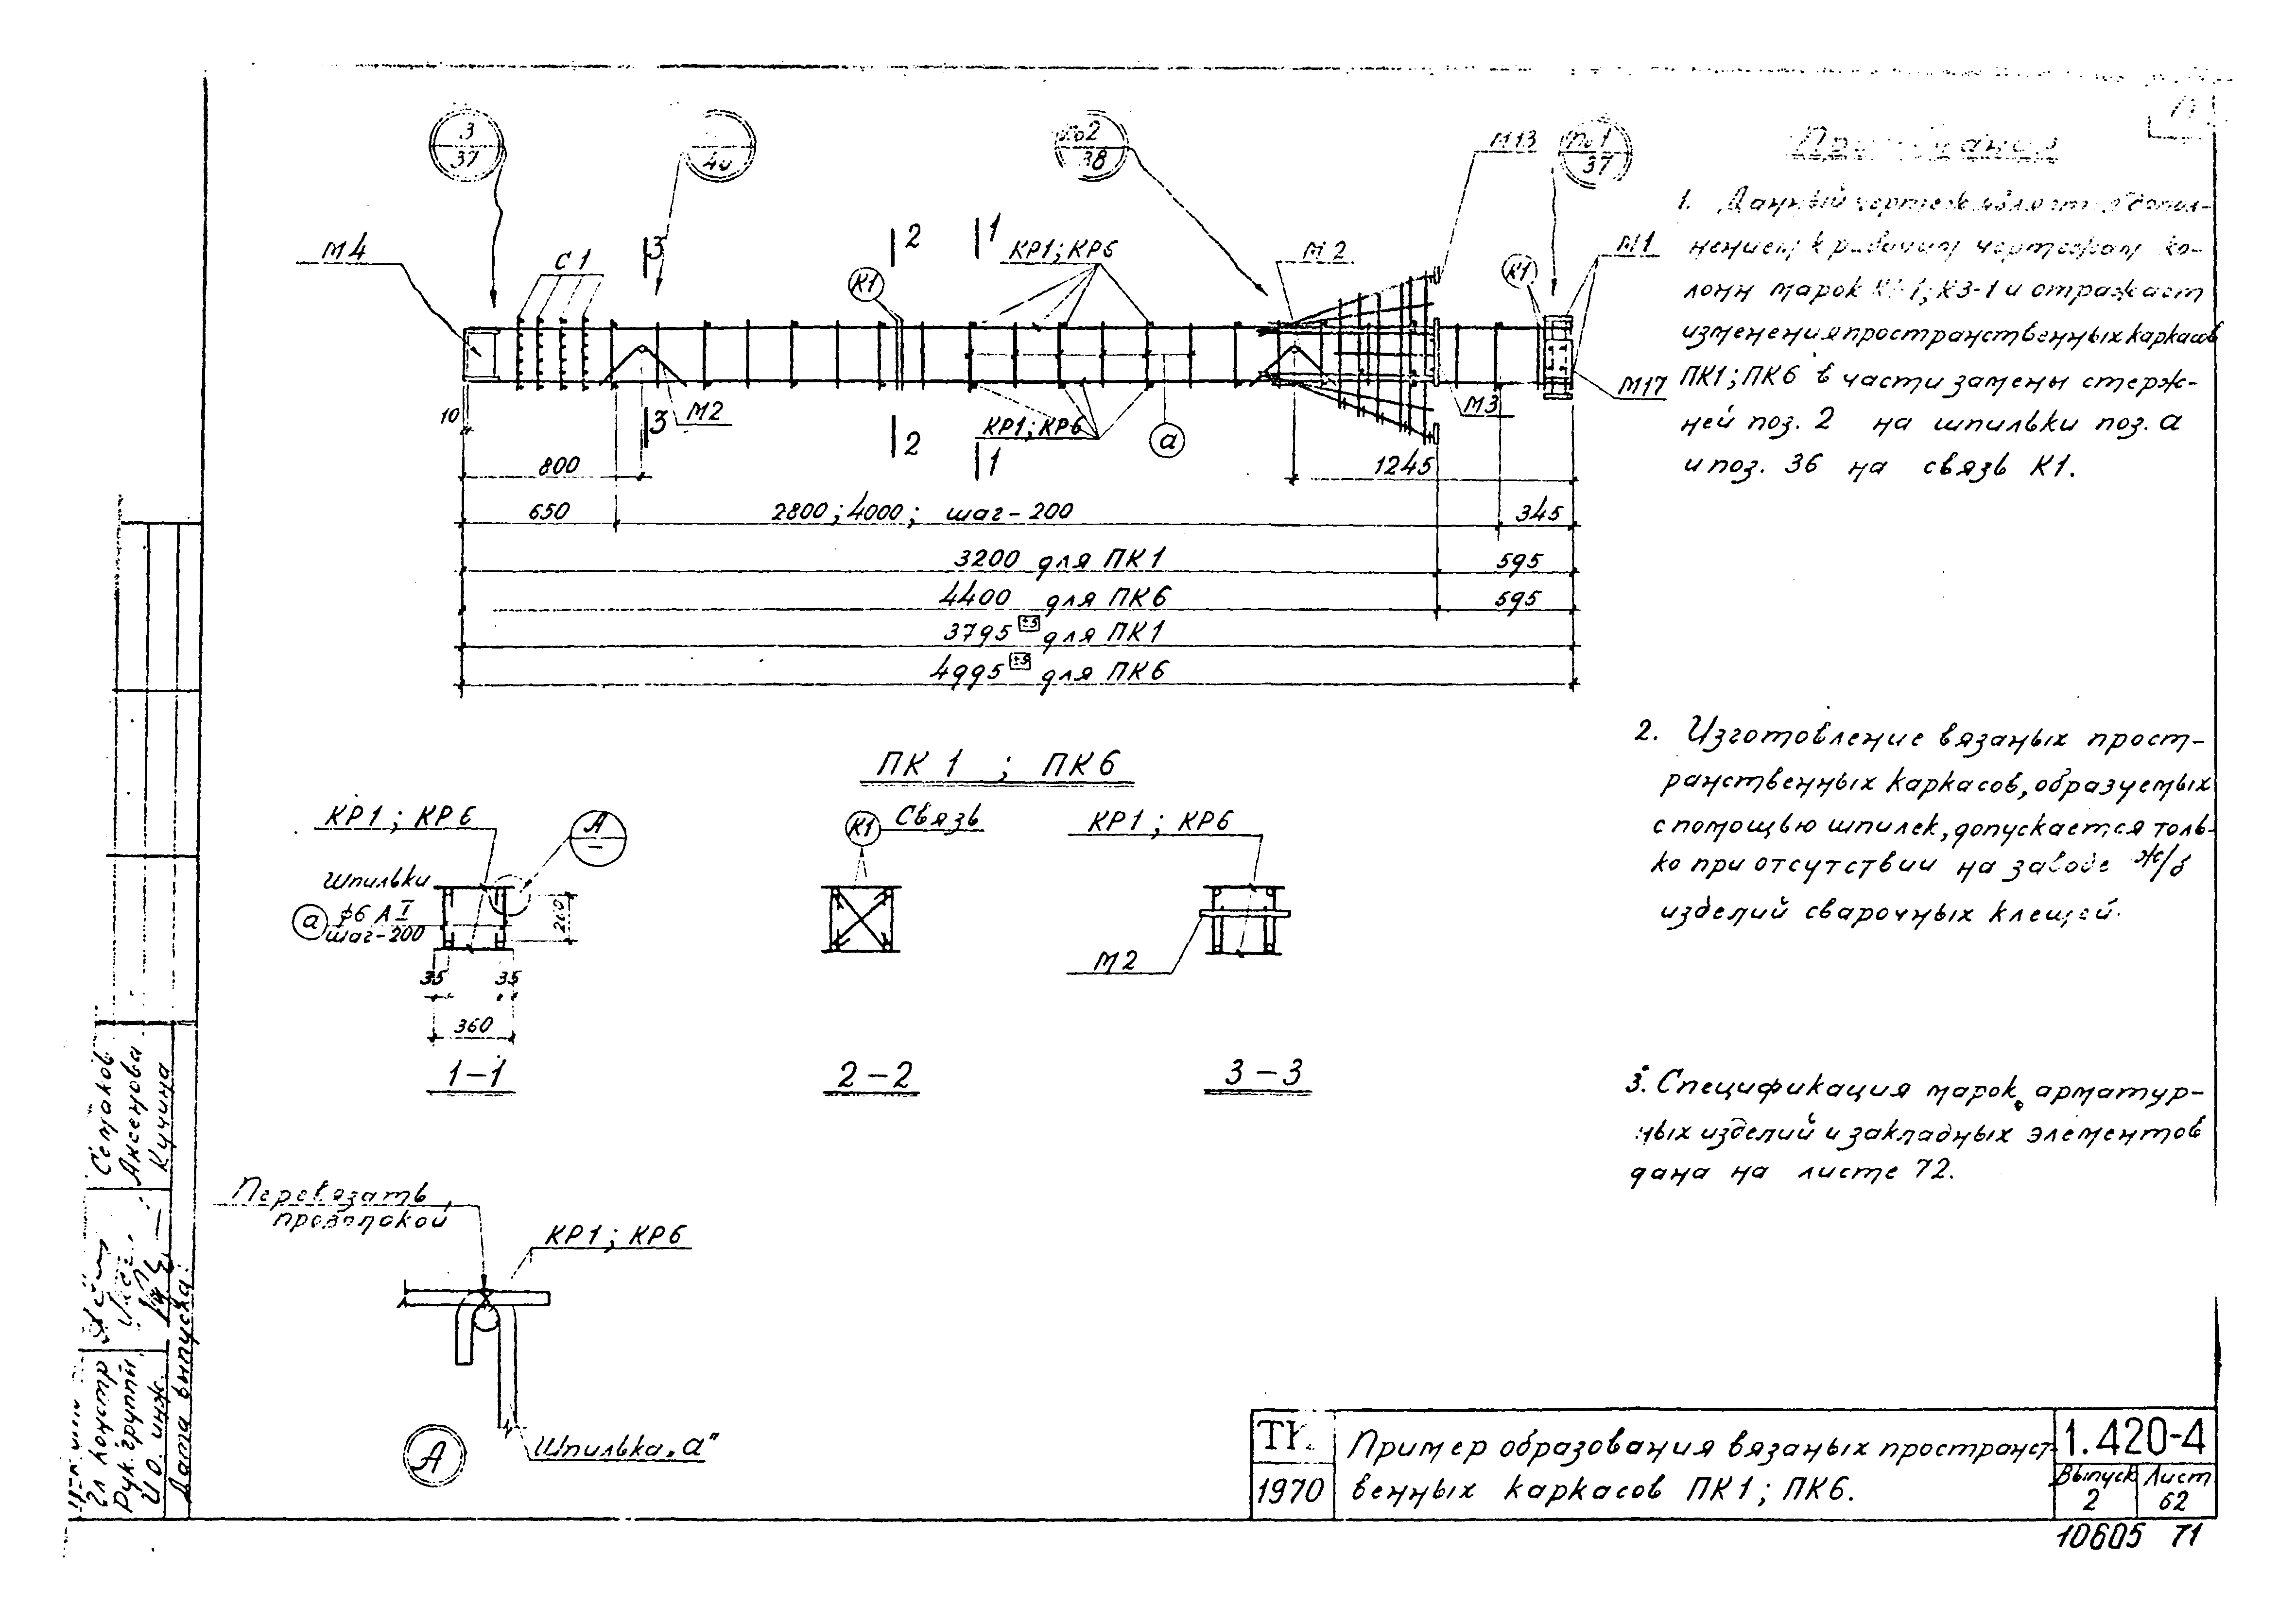 3
37
40
по 2
38
М13
по 1
37
М4
С1
3
2
1
КР1; КР6
М2
К1
К1
М1
10
3
М2
2
КР1; КР6
1
а
М3
М17
800
1245
650
2800; 4000; шаг-200
345
3200 для ПК1
595
4400 для ПК6
595
3795 ±5 для ПК1
4995 ±5 для ПК6
ПК 1 ; ПК6
КР1; КР6
А
Шпильки
а ф6 АI
шаг-200
35
35
360
1-1
К1 Связь
2-2
КР1; КР6
М2
3-3
Перевязать
проволокой
КР1; КР6
Шпилька „а"
А
Примечания
1. Данный чертеж является допол-
нением к рабочим чертежам ко-
лонн марок К3-1 и отражает
изменения пространственных каркасов
ПК1; ПК6 в части замены стерж-
ней поз. 2 на шпильки поз. а
и поз. 36 на связь К1.
2. Изготовление вязаных прост-
ранственных каркасов, образуемых
с помощью шпилек, допускается толь-
ко при отсутствии на заводе ж/б
изделий сварочных клещей.
3. Спецификация марок арматур-
ных изделий и закладных элементов
дана на листе 72.
Семаков
Аксенова
Кучина
Гл констр
Рук. группы
И.О. инж.
Дата выпуска:
ТК
1970
Пример образования вязаных пространст-
венных каркасов ПК1; ПК6.
1.420-4
Выпуск
2
Лист
62
10605 71